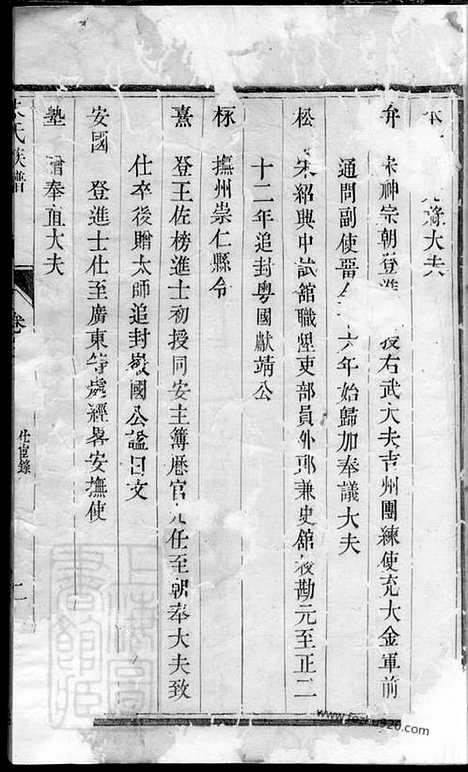 大夫
弁 宋神宗朝登進 授右武大夫吉州團練使充大金軍前
通問副使 六年始歸加奉議大夫
松 宋紹興中試舘職歷吏部員外郎兼史舘校勘元至正二
十二年追封粤國獻靖公
㭬 撫州崇仁縣令
熹 登王佐榜進士初授同安主簿歷官九任至朝奉大夫致
仕卒後贈太師追封徽國公謚曰文
安國 登進士仕至廣東等處經畧安撫使
塾 贈奉直大夫
氏族譜
卷
仕宦錄
二
www.fozhu920.com